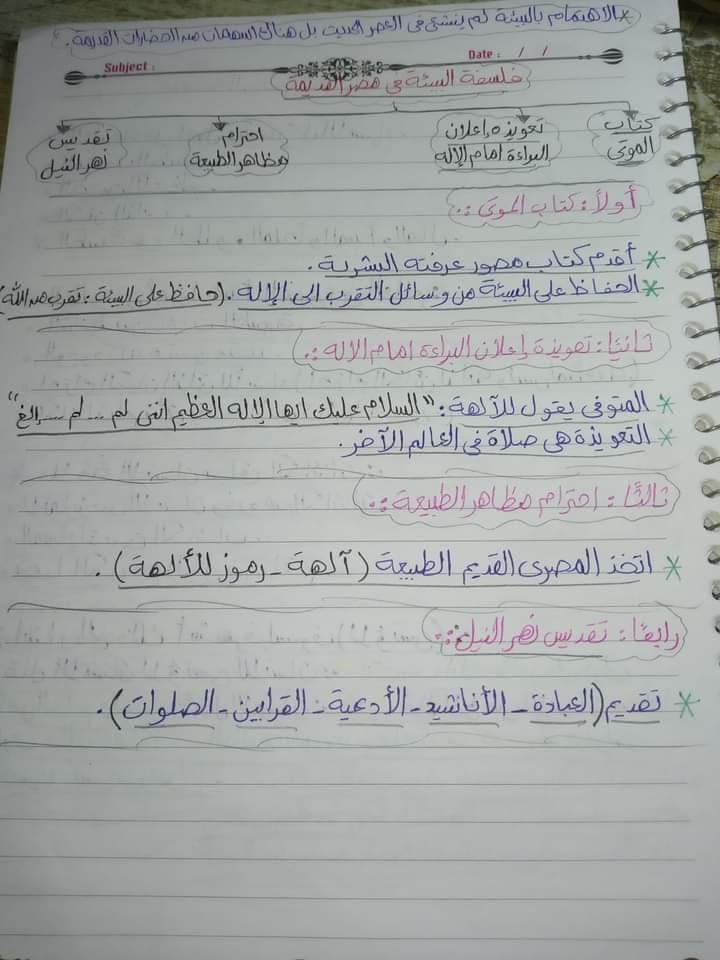 *الاهتمام بالبيئة لم ينشئ فى العصر الحديث بل هناك اسهامات من الحضارات القديمة.
Subject : Date : / /
فلسفة البيئة فى مصر القديمة
كتاب الموتى
تعويذه إعلان البراءة امام الإله
احترام مظاهر الطبيعة
تقديس نهر النيل
أولاً: كتاب الموتى:.
* أقدم كتاب مصور عرفته البشرية.
* الحفاظ على البيئة من وسائل التقرب الى الإله. (حافظ على البيئة: تقرب من الله)
ثانيًا: تعويذة إعلان البراءة امام الاله:.
* المتوفى يقول للآلهة: "السلام عليك ايها الإله العظيم اننى لم ... لم ... إلخ"
* التعويذة هى صلاة فى العالم الآخر.
ثالثًا: احترام مظاهر الطبيعة:.
* اتخذ المصرى القديم الطبيعة (آلهة - رموز للألهة).
رابعًا: تقديس نهر النيل:.
* تقديم (العبادة - الأناشيد - الأدعية - القرابين - الصلوات).